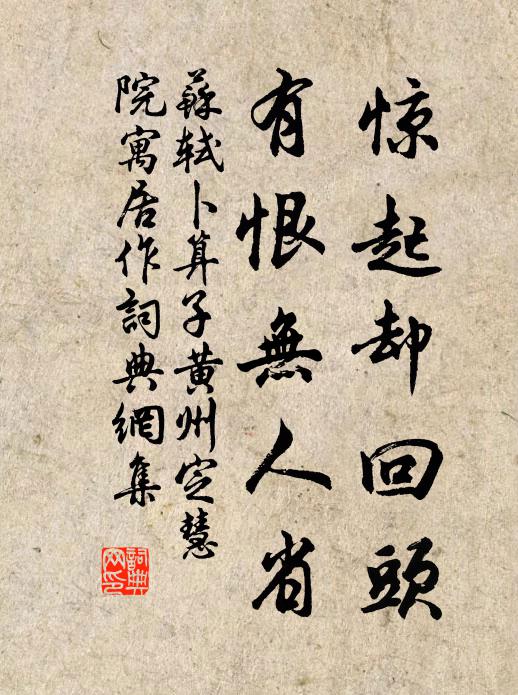 惊起却回頭
有恨無人省
蘇軾卜算子黄州定慧
院寓居作詞典網集
詞典
网印